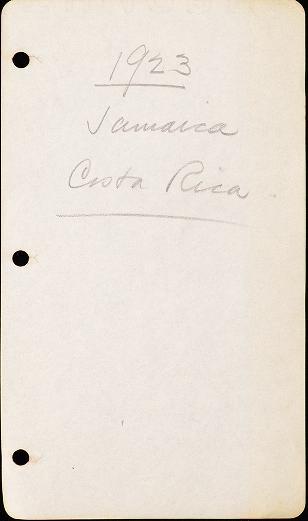 1923
Jamaica
Costa Rica